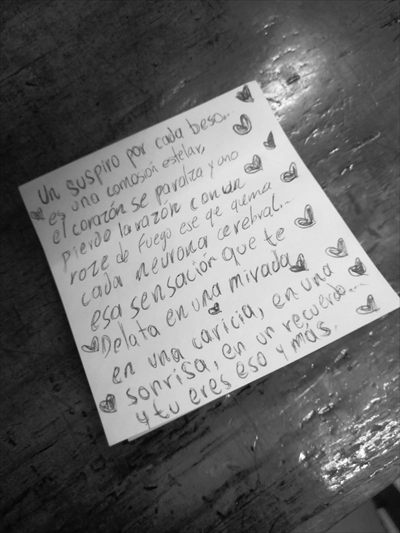 Un suspiro por cada beso...
es una conmosión estelar,
el corazón se paraliza y uno
pierdo la razón con un
roze de fuego ese qe quema
cada neurona cerebral...
esa sensación que te
Delata en una mirada
en una caricia, en una
sonrisa, en un recuerdo...
y tu eres eso y más.